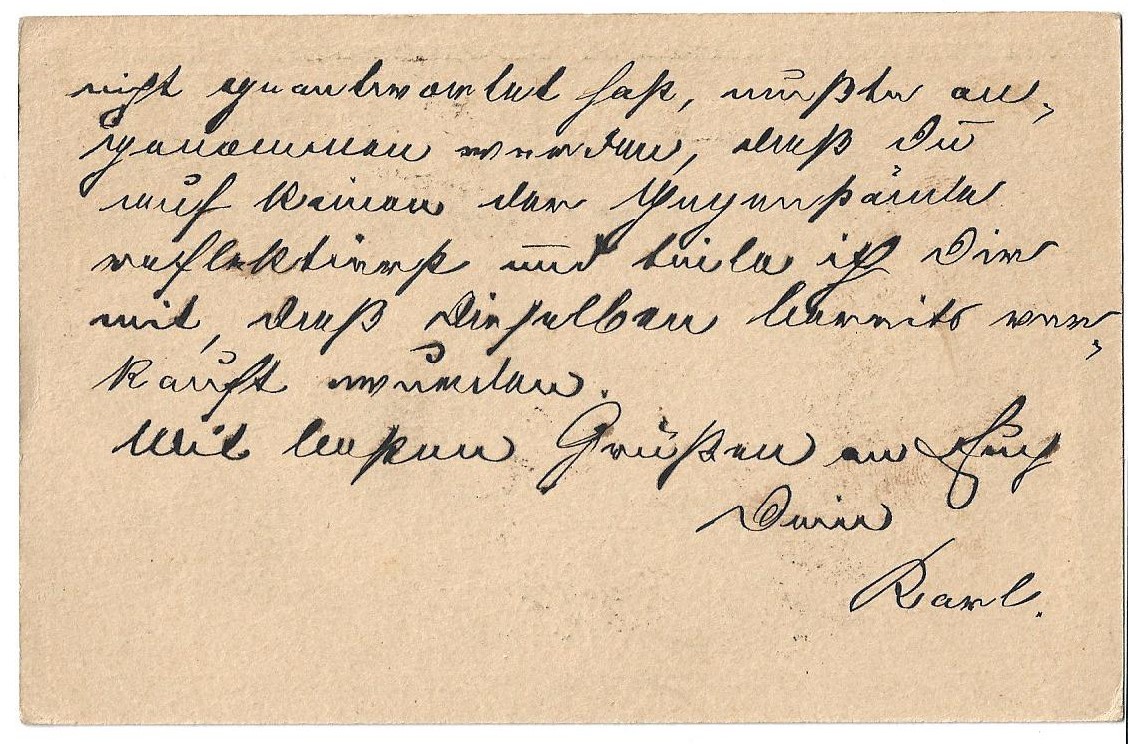 nicht geantwortet hast, mußte an-
genommen werden, daß Du
auf keinen der Gegenstände
reflektierst und teile ich Dir
mit, daß dieselben bereits ver-
kauft wurden.
Mit besten Grüßen an Euch
Dein
Karl.